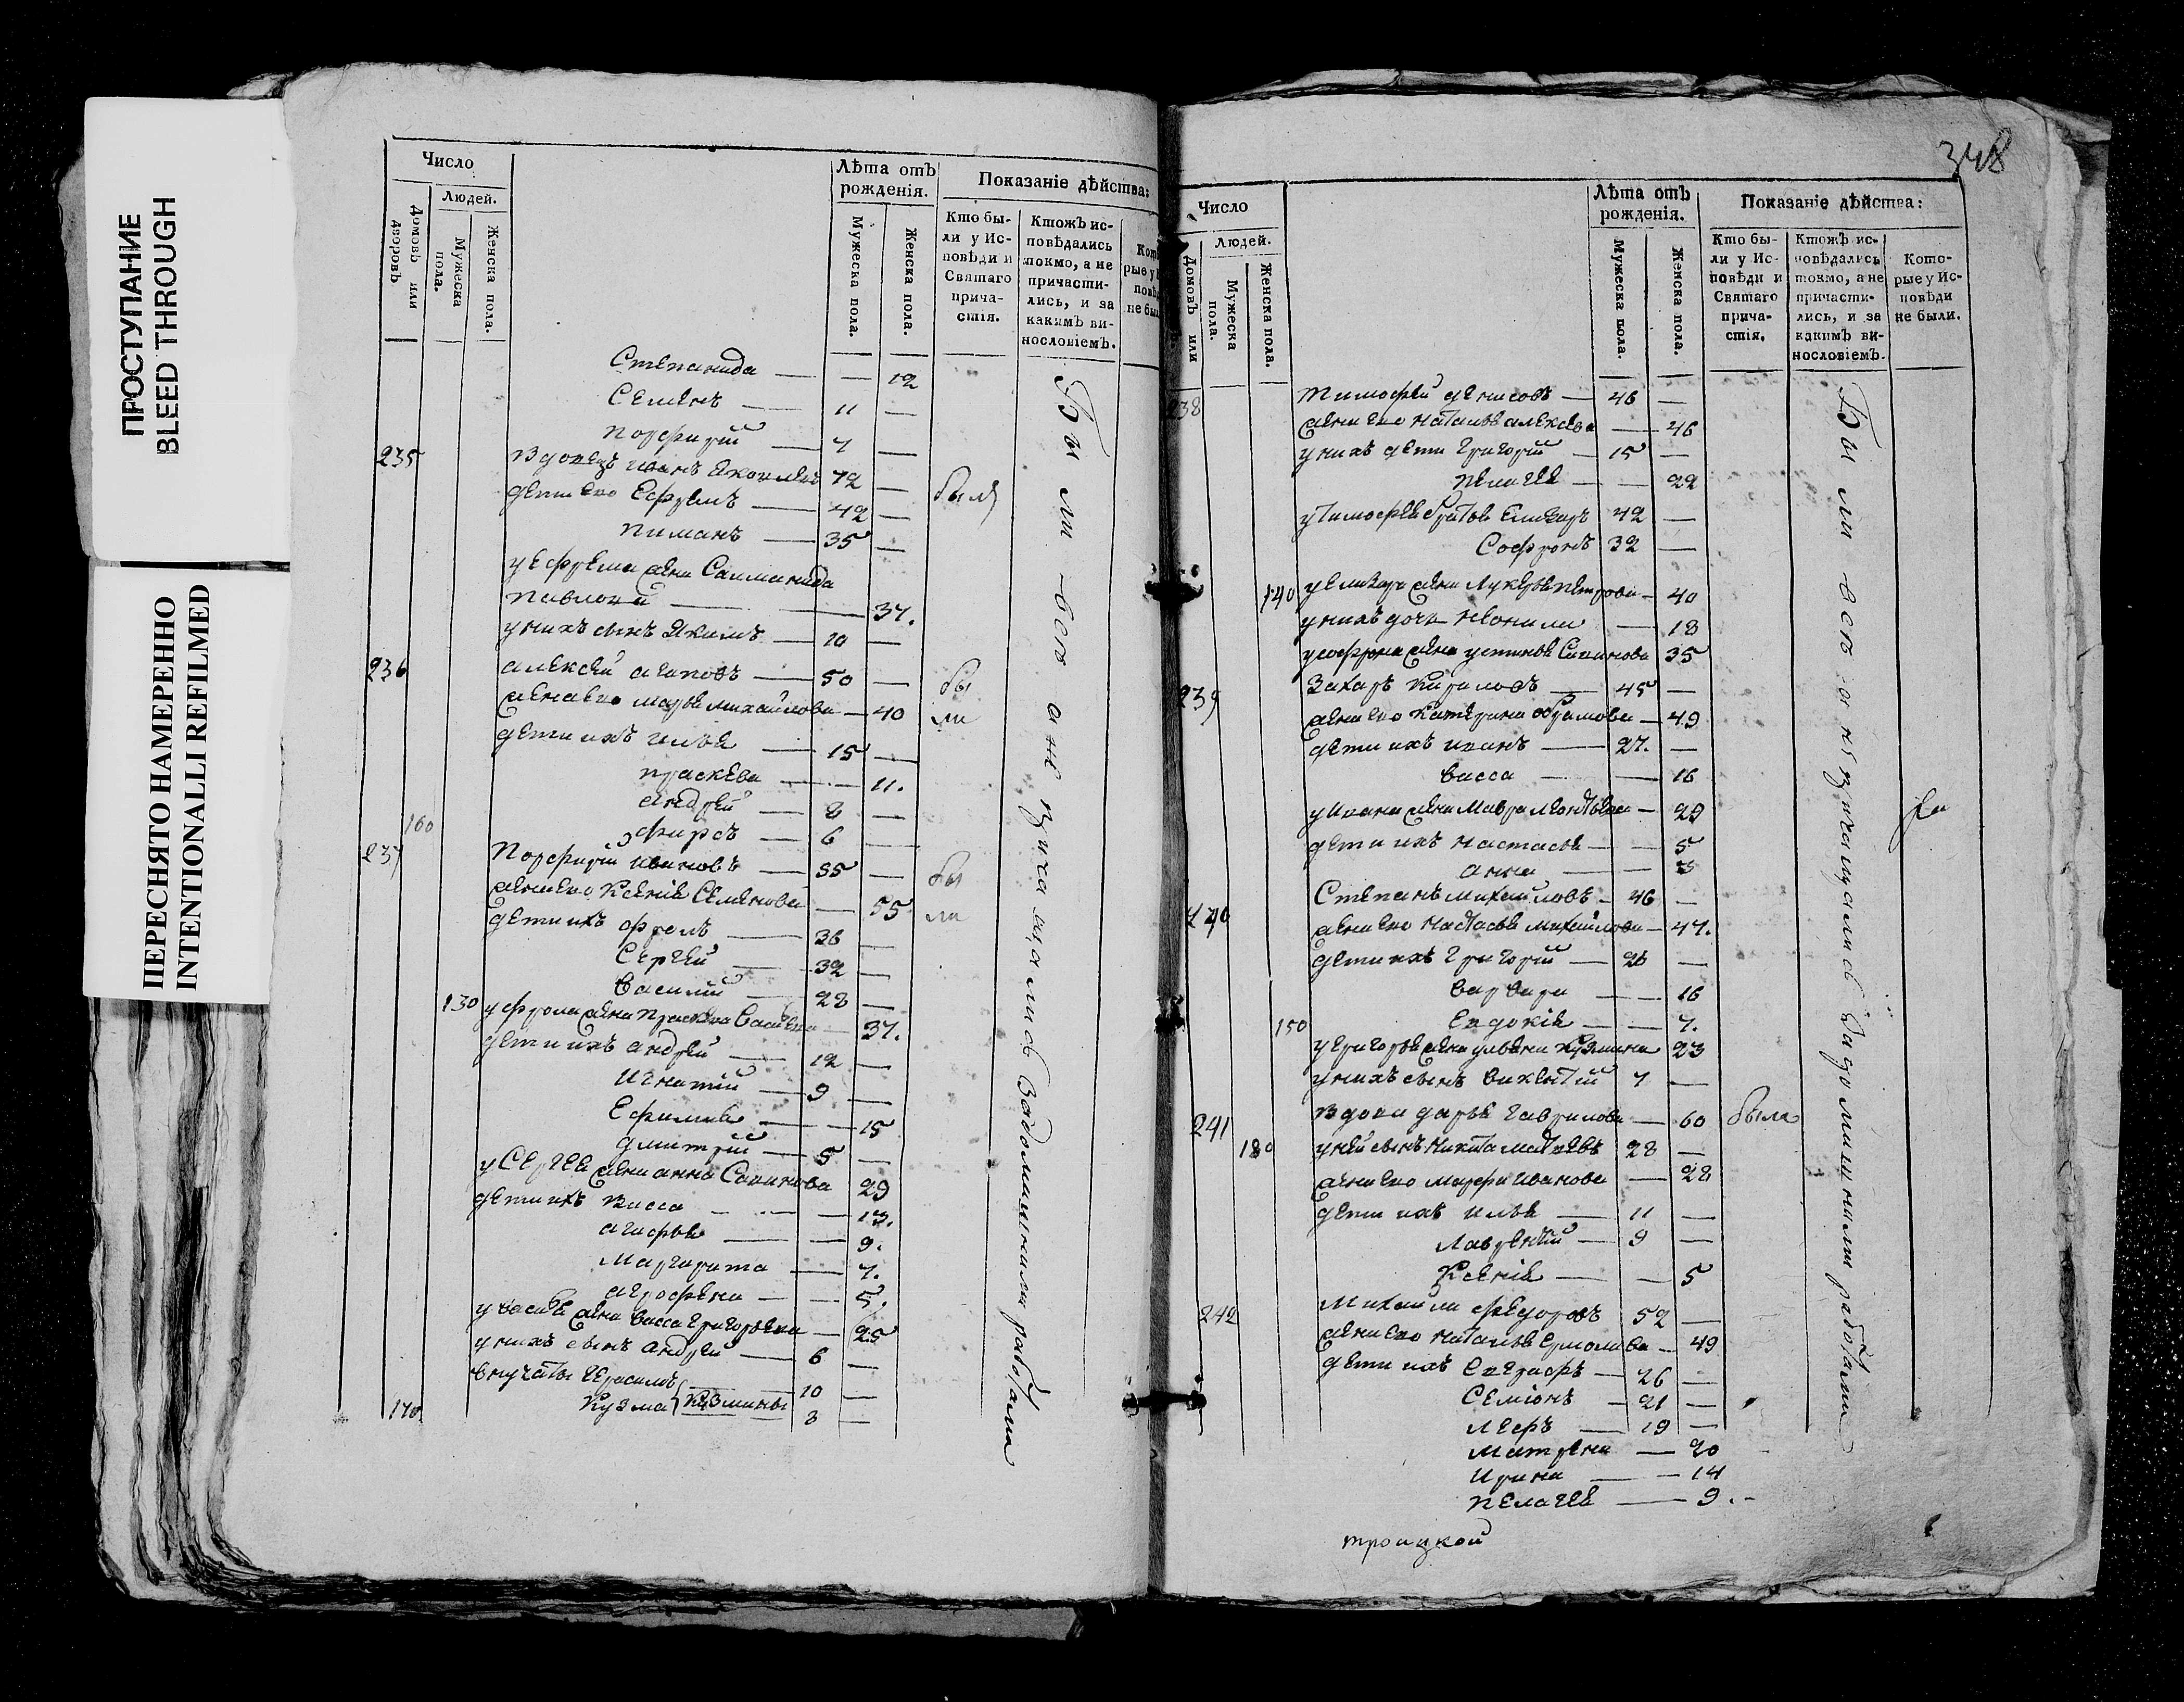 ПРОСТУПАНИЕ
BLEED THROUGH
ПЕРЕСНЯТО НАМЕРЕННО
INTENTIONALLI REFILMED
Число
Людей.
Домовъ или дворовъ
Мужеска пола.
Женска пола.
Лѣта отъ рожденія.
Мужеска пола.
Женска пола.
Показаніе дѣйства:
Кто бы-
ли у Ис-
повѣди и
Святаго
прича-
стія.
Ктожъ ис-
повѣдались
токмо, а не
причасти-
лись, и за
какимъ ви-
нословіемъ.
Степанида — — 12
Семенъ — 11 —
Порфирій — 7 —
235 Вдовецъ Иванъ Яковлевъ 72 — былъ
дети ево Ефремъ — 42 —
Пиманъ — 35 —
у Ефрема жена Саломанида
Павлова — — 37.
у нихъ сынъ Якимъ — 10 —
236 Алексей Агаповъ — 50 — бы
жена ево Марья Михайлова — 40 ли
дети ихъ Илья — 15 —
Праскева — — 11.
Андрей — 8 —
160 Фирсъ — 6 —
237 Порфирій Ивановъ — 55 — бы
жена ево Ксенія Семенова — 55 ли
дети ихъ Фролъ — 36 —
Сергей — 32 —
Василій — 28 —
130 у Фрола жена Праскева Васильева — 37.
дети ихъ Андрей — 12 —
Игнатій — 9 —
Ефимия — — 15
Дмитрій — 5 —
у Сергея жена Анна Савинова 29
дети ихъ Васса — — 13.
Агафья — — 9.
Маргарита — 7.
Агрофена — — 5.
у Василья жена Васса Григорьева — 25
у нихъ сынъ Андрей — 6 —
внучаты Герасимъ — 10 —
170 Кузма Кузмины 8 —
Были все а не причащались За домашними работами
348
Число
Людей.
Домовъ или
Мужеска пола.
Женска пола.
Лѣта отъ рожденія.
Мужеска пола.
Женска пола.
Показаніе дѣйства:
Кто бы-
ли у Ис-
повѣди и
Святаго
прича-
стія.
Ктожъ ис-
повѣдались
токмо, а не
причасти-
лись, и за
какимъ ви-
нословіемъ.
Кото-
рые у Ис-
повѣди
не были.
238 Тимофей Денисовъ — 46 —
жена ево Наталья Алексева — 46
у нихъ дети Григорій — 15 —
Пелагея — — 22
у Тимофея братья Елизаръ 42 —
Софронъ 32 —
140 у Елизара жена Лукерья Петрова — 40
у нихъ дочь Неонила — 18
у Софрона жена Устинья Савинова 35
239 Захаръ Кириловъ — 45 —
жена ево Катерина Абрамова — 49
дети ихъ Иванъ — 27. —
Васса — — 16
у Ивана жена Мавра Леонтьева — 29
дети ихъ Настасья — — 5
Анна — — 3
240 Степанъ Михайловъ — 46 —
жена ево Настасья Михайлова — 47.
дети ихъ Григорій — 26 —
Варвара — — 16
150 Евдокія — — 7.
у Григорья жена Ульяна Кузмина 23
у нихъ сынъ Викентій 7 —
241 Вдова Дарья Гаврилова — 60 была
180 у ней сынъ Никита Матвевъ 28 —
жена ево Марфа Иванова — 28
дети ихъ Илья — 11 —
Лаврентій — 9 —
Ксенія — — 5
242 Михаила Федоровъ 52 —
жена ево Наталья Ермолаева — 49
дети ихъ Евграфъ — 26 —
Семіонъ — 21 —
Лефъ — 19 —
Матрена — 20
Ирина — — 14
Пелагея — 9.
Были все а не причащались За домашними работами
Троицкой